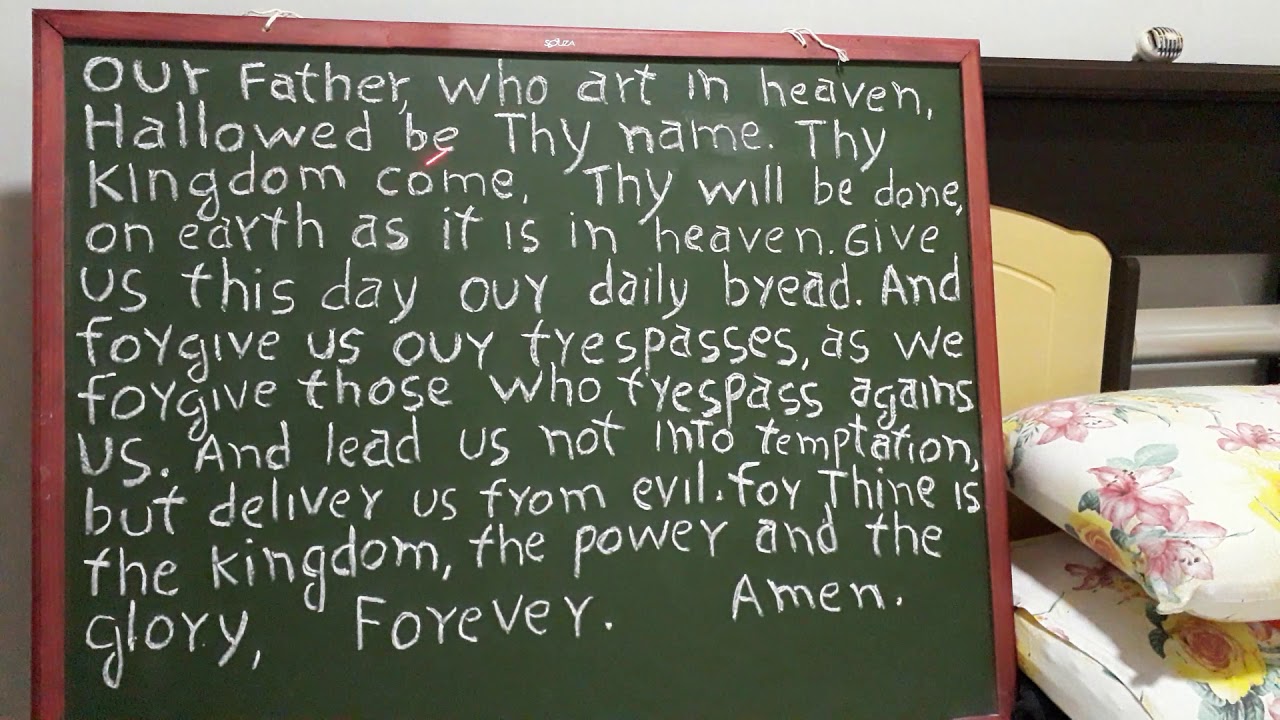 SOUZA
Our Father, who art in heaven,
Hallowed be Thy name. Thy
Kingdom come. Thy will be done,
on earth as it is in heaven. Give
us this day our daily bread. And
forgive us our trespasses, as we
forgive those who trespass agains
us. And lead us not into temptation,
but deliver us from evil. for Thine is
the kingdom, the power and the
glory, Forever. Amen.